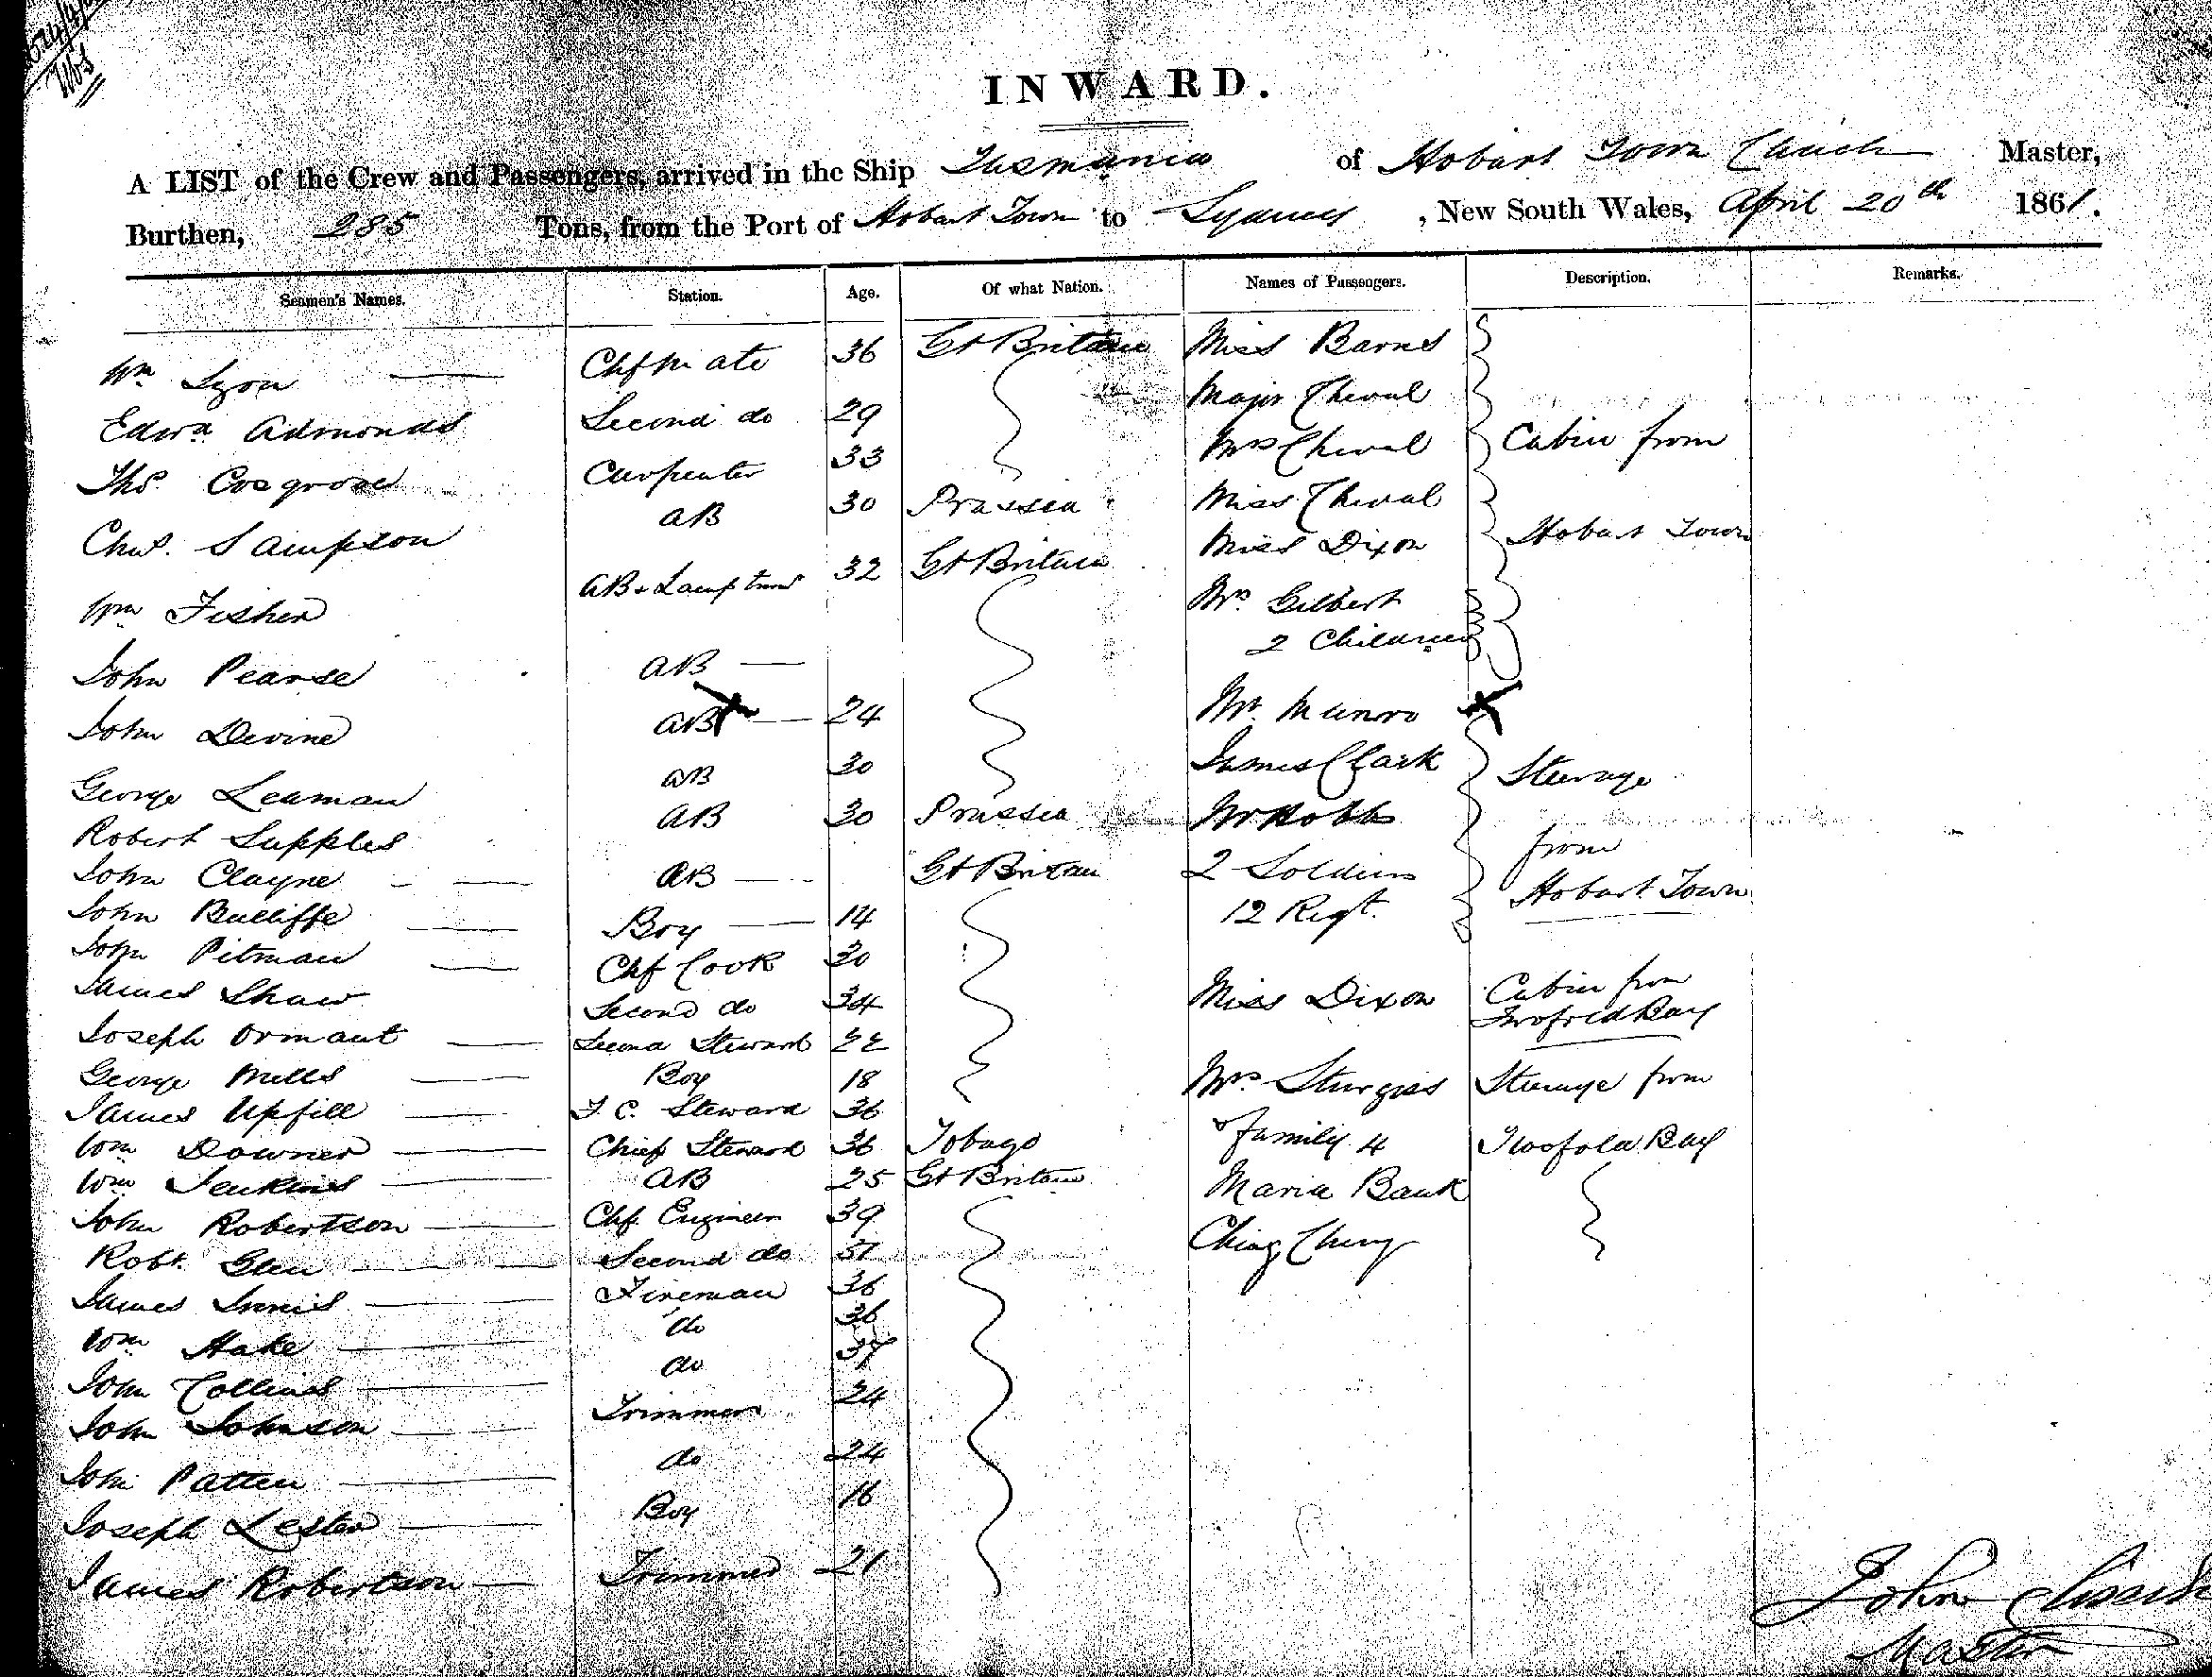 INWARD.
A LIST of the Crew and Passengers, arrived in the Ship Tasmania of Hobart Town Clinch Master,
Burthen, 285 Tons, from the Port of Hobart Town to Sydney, New South Wales, April 20th 1861.
Seamen's Names. Station. Age. Of what Nation. Names of Passengers. Description. Remarks.
Wm Lyon Chf Mate 36 Gt Britain Miss Barns
Edwd Admonds Second do 29 Major Cheval
Ths. Cosgrove Carpenter 33 Mrs Cheval Cabin from
Chas. Sampson AB 30 Prussia Miss Cheval
Wm Fisher AB & Lamp 32 Gt Britain Miss Dixon Hobart Town
Mrs. Gilbert
2 Children
John Pearse AB
John Devine AB 24 Mr. Munro
George Leaman AB 30 James Clark Steerage
Robert Supples AB 30 Prussia Mr Hobbs from
John Clayne AB Gt Britain 2 Soldiers Hobart Town
John Butliffe Boy 14 12 Regt.
John Pitman Chf Cook 30
James Shaw Second do 34 Miss Dixon Cabin from
Twofold Bay
Joseph Ormant Second Steward 22
George Mills Boy 18 Mrs. Sturgess Steerage from
James Upfill F. C. Steward 36 & family 4
Wm Downer Chief Steward 36 Tobago Twofold Bay
Wm Jenkins AB 25 Gt Britain Maria Bank
John Robertson Chf. Engineer 39 Ching Chung
Robt. Glen Second do
James Innis Fireman 36
Wm Hake do 36
John Collins do
John Johnson Trimmer 24
John Patten do 24
Joseph Lester Boy 16
James Robertson Trimmer 21
John Clinch
Master